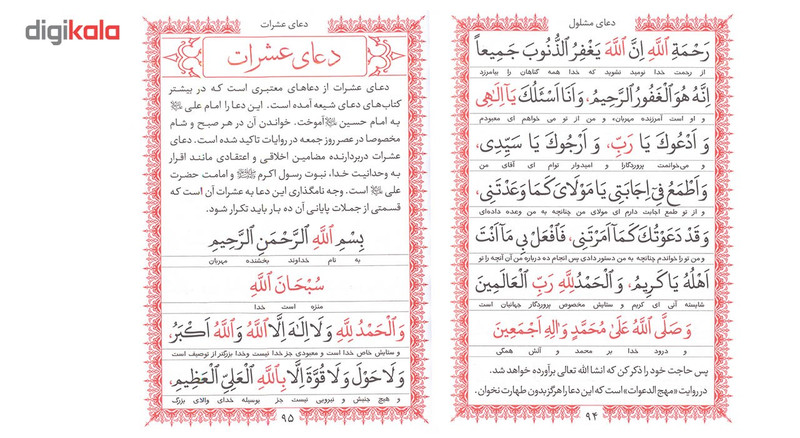 digikala
دعای مشلول
رَحْمَةِ اللَّهِ اِنَّ اللَّهَ يَغْفِرُ الذُّنُوبَ جَمِيعاً
از رحمت خدا نومید نشوید که خدا همه گناهان را بیامرزد
اِنَّهُ هُوَ الْغَفُورُ الرَّحِيمُ، وَ اَنَا اَسْئَلُكَ يَا اِلٰهِى
و او است آمرزنده مهربان، و من از تو می خواهم ای معبودم
وَ اَدْعُوكَ يَا رَبِّ، وَ اَرْجُوكَ يَا سَيِّدِى،
و می‌خوانمت پروردگارا و امیدوار توام ای آقای من
وَ اَطْمَعُ فِىٓ اِجَابَتِى يَا مَوْلَاىَ كَمَا وَعَدْتَنِى،
و از تو طمع اجابت دارم ای مولای من چنانچه به من وعده داده‌ای
وَ قَدْ دَعَوْتُكَ كَمَآ اَمَرْتَنِى، فَافْعَلْ بِى مَآ اَنْتَ
و من تو را خواندم چنانچه به من دستور دادی پس انجام ده درباره من آن آنچه را تو
اَهْلُهُ يَا كَرِيمُ، وَ الْحَمْدُ لِلَّهِ رَبِّ الْعَالَمِينَ
شایسته آنی ای کریم و ستایش مخصوص پروردگار جهانیان است
وَ صَلَّى اللَّهُ عَلىٰ مُحَمَّدٍ وَ اٰلِهِ اَجْمَعِينَ
و درود خدا بر محمد و آلش همگی
پس حاجت خود را ذکر کن که انشا الله تعالی برآورده خواهد شد.
در روایت «مهج الدعوات» است که این دعا را هرگز بدون طهارت نخوان.
۹۴
دعای عشرات
دعای عشرات
دعای عشرات از دعاهای معتبری است که در بیشتر
کتاب‌های دعای شیعه آمده است. این دعا را امام علی ﷺ
به امام حسین ﷺ آموخت. خواندن آن در هر صبح و شام
مخصوصا در عصر روز جمعه در روایات تاکید شده است. دعای
عشرات دربردارنده مضامین اخلاقی و اعتقادی مانند اقرار
به وحدانیت خدا، نبوت رسول اکرم ﷺ و امامت حضرت
علی ﷺ است. وجه نامگذاری این دعا به عشرات آن است که
قسمتی از جملات پایانی آن ده بار باید تکرار شود.
بِسْمِ اللَّهِ الرَّحْمَنِ الرَّحِيمِ
به نام خداوند بخشنده مهربان
سُبْحَانَ اللَّهِ
منزه است خدا
وَ الْحَمْدُ لِلَّهِ وَ لَا اِلٰهَ اِلَّا اللَّهُ وَ اللَّهُ اَكْبَرُ،
و ستایش خاص خدا است و معبودی جز خدا نیست و خدا بزرگتر از توصیف است
وَ لَا حَوْلَ وَ لَا قُوَّةَ اِلَّا بِاللَّهِ الْعَلِيِّ الْعَظِيمِ،
و هیچ جنبش و نیرویی نیست جز بوسیله خدای والای بزرگ
۹۵